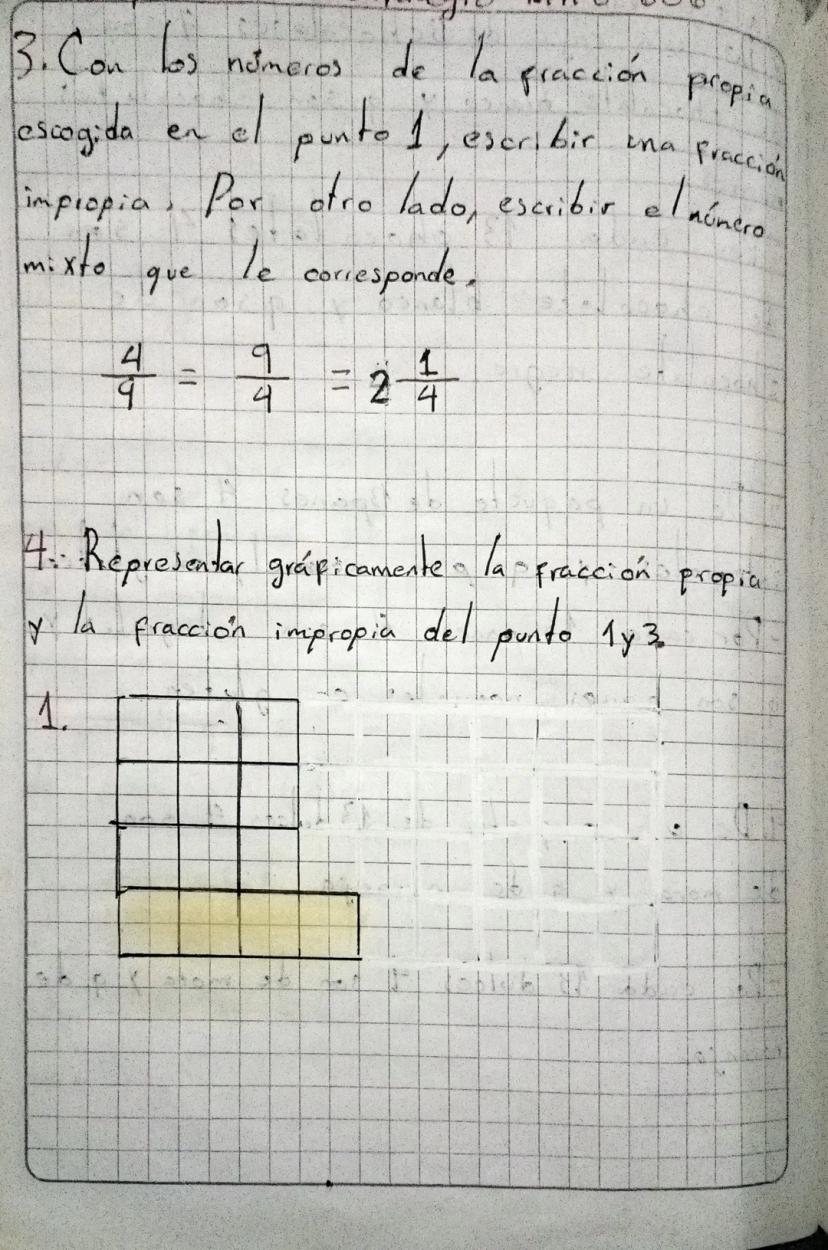 3. Con los números de la fracción propia
escogida en el punto 1, escribir una fracción
impropia. Por otro lado, escribir el número
mixto que le corresponde.
4/9 = 9/4 = 2 1/4
4. Representar gráficamente la fracción propia
y la fracción impropia del punto 1 y 3.
1.